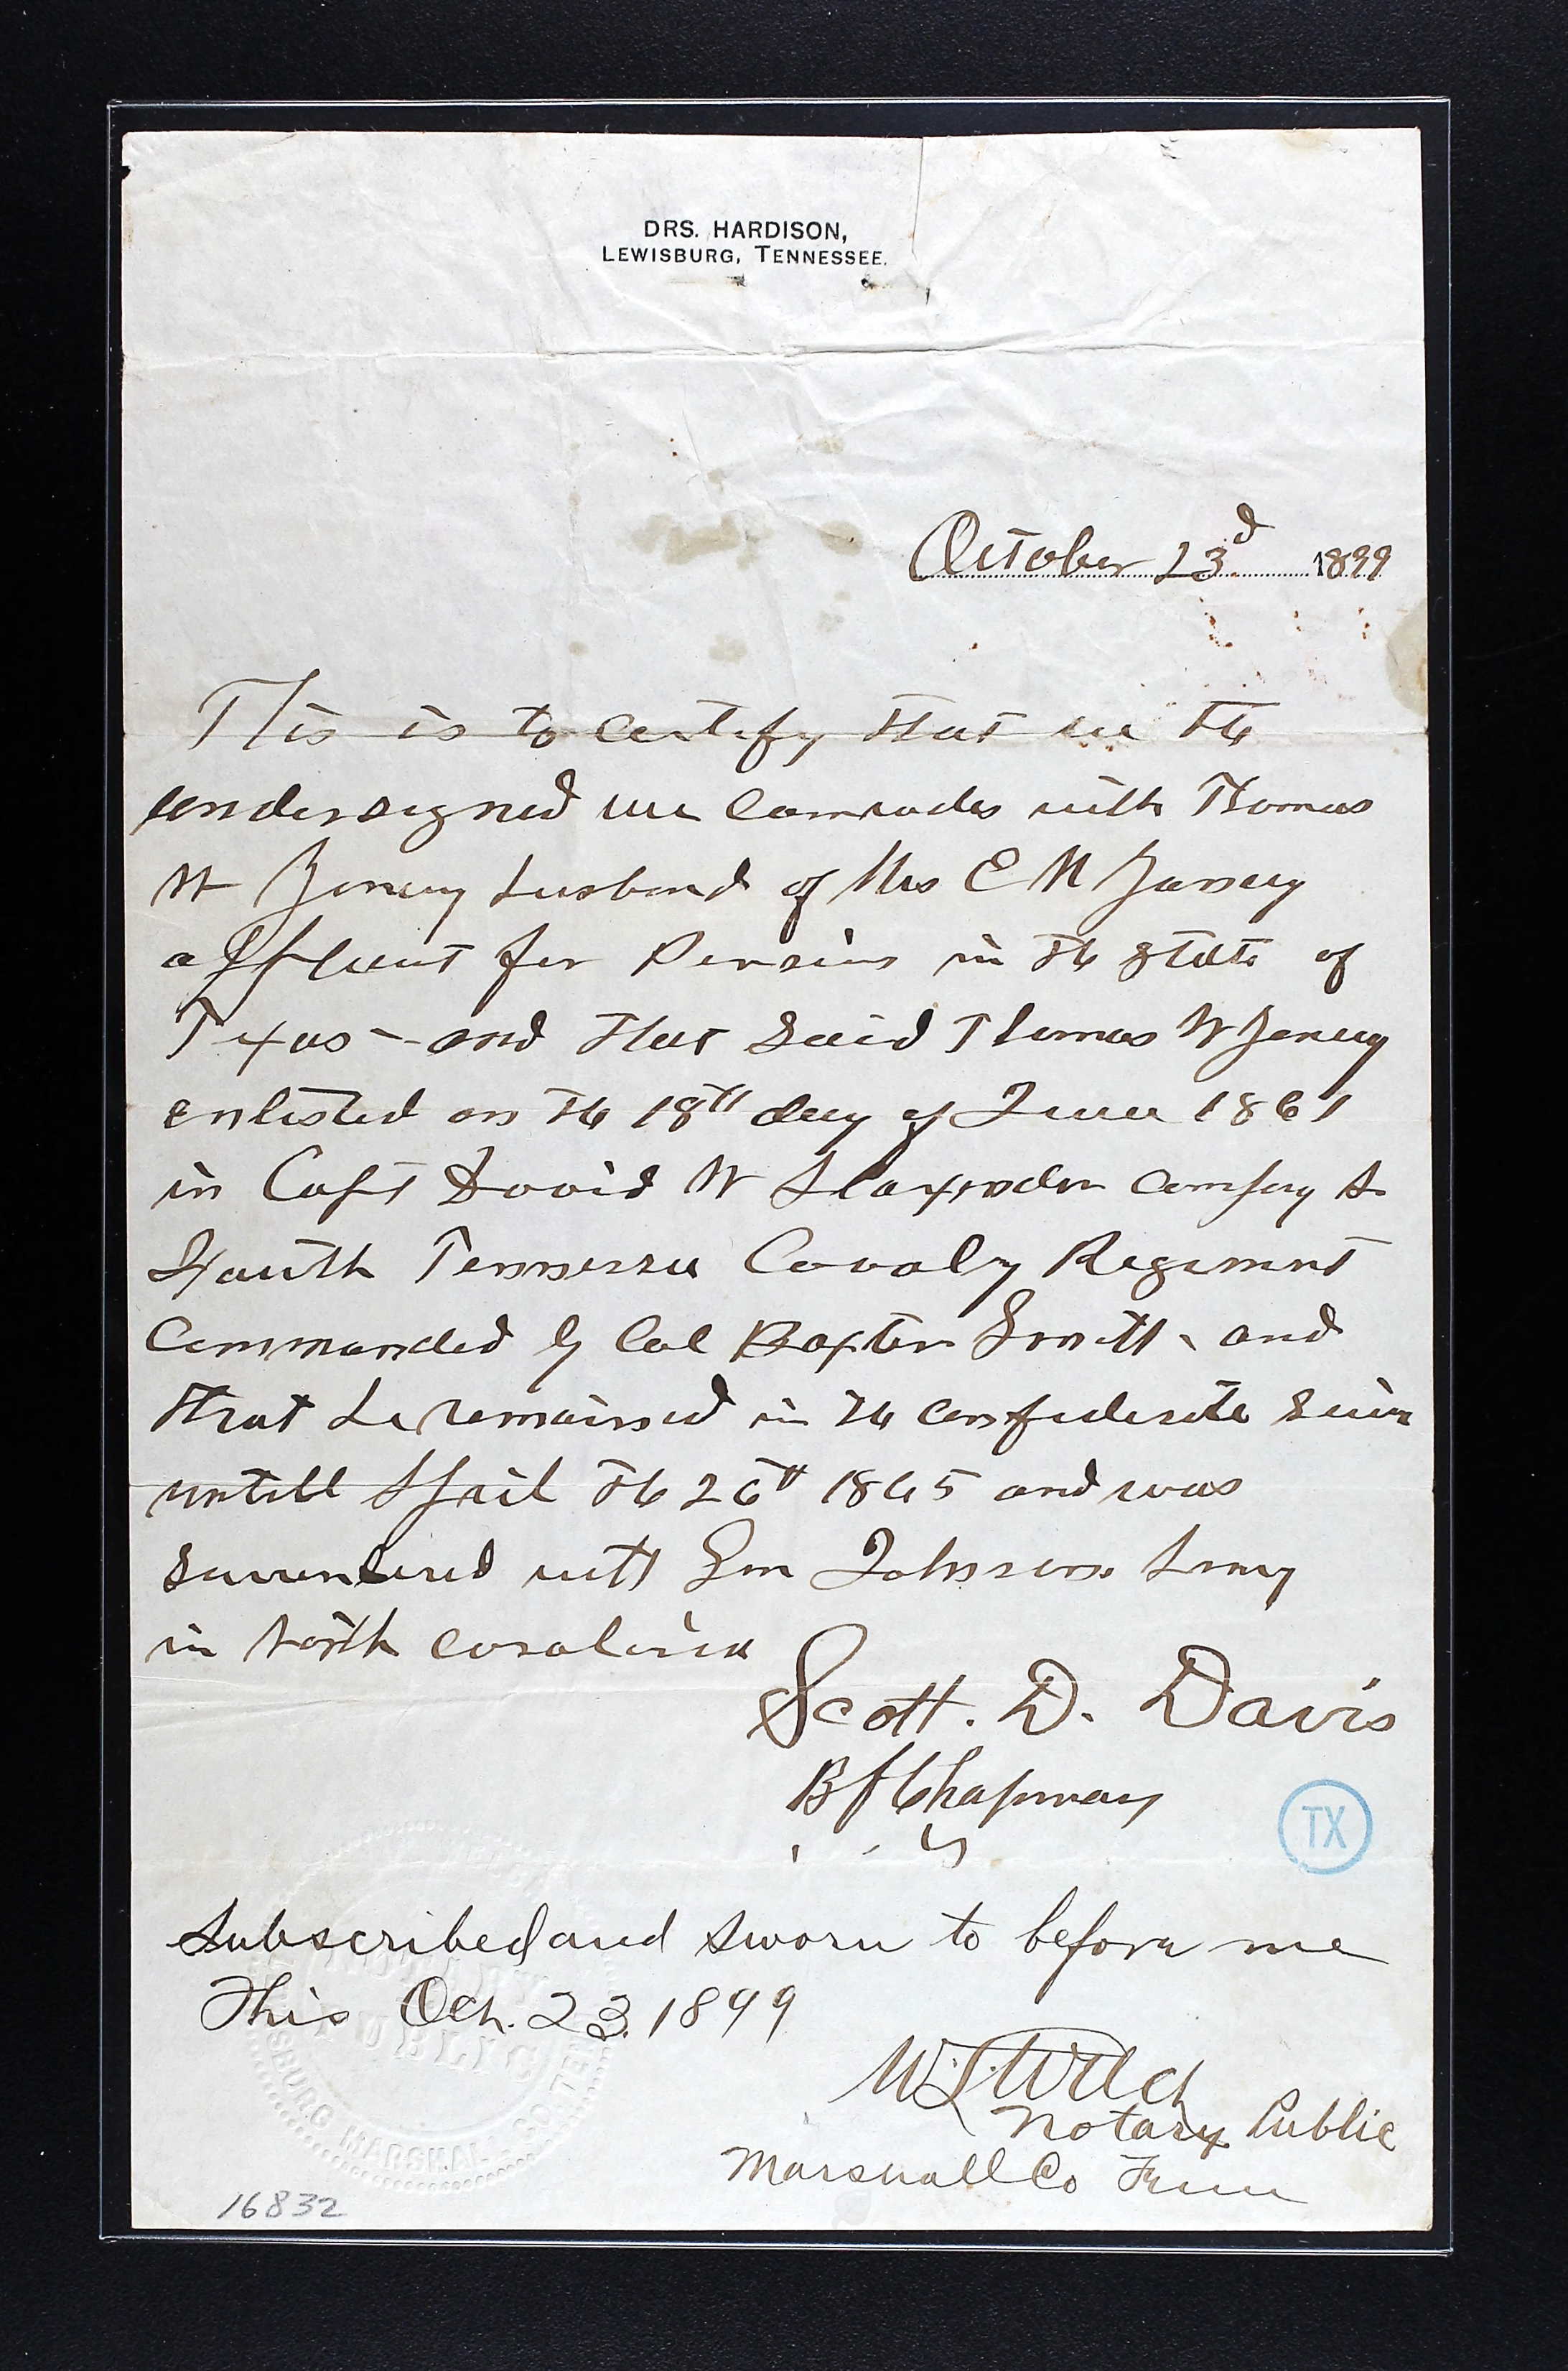 DRS. HARDISON,
LEWISBURG, TENNESSEE.
October 23d 1899
This is to certify that we the
undersigned were Comrades with Thomas
W Yancey husband of Mrs E M Yancey
applicant for Pension in the state of
Texas - and that said Thomas W Yancey
enlisted on the 18th day of June 1861
in Capt David W Alaxander Company
Fourth Tennessee Cavalry Regiment
Commanded by Col Baxter Smith and
that he remained in the confederate
untill April the 26th 1865 and was
surrendered with Gen Johnson Army
in North Carolina
Scott. D. Davis
B f Chapman
Subscribed and sworn to before me
This Oct. 23. 1899
Notary Public
Marshall Co Tenn
TX
PUBLIC
MARSHALL CO. TEN
16832